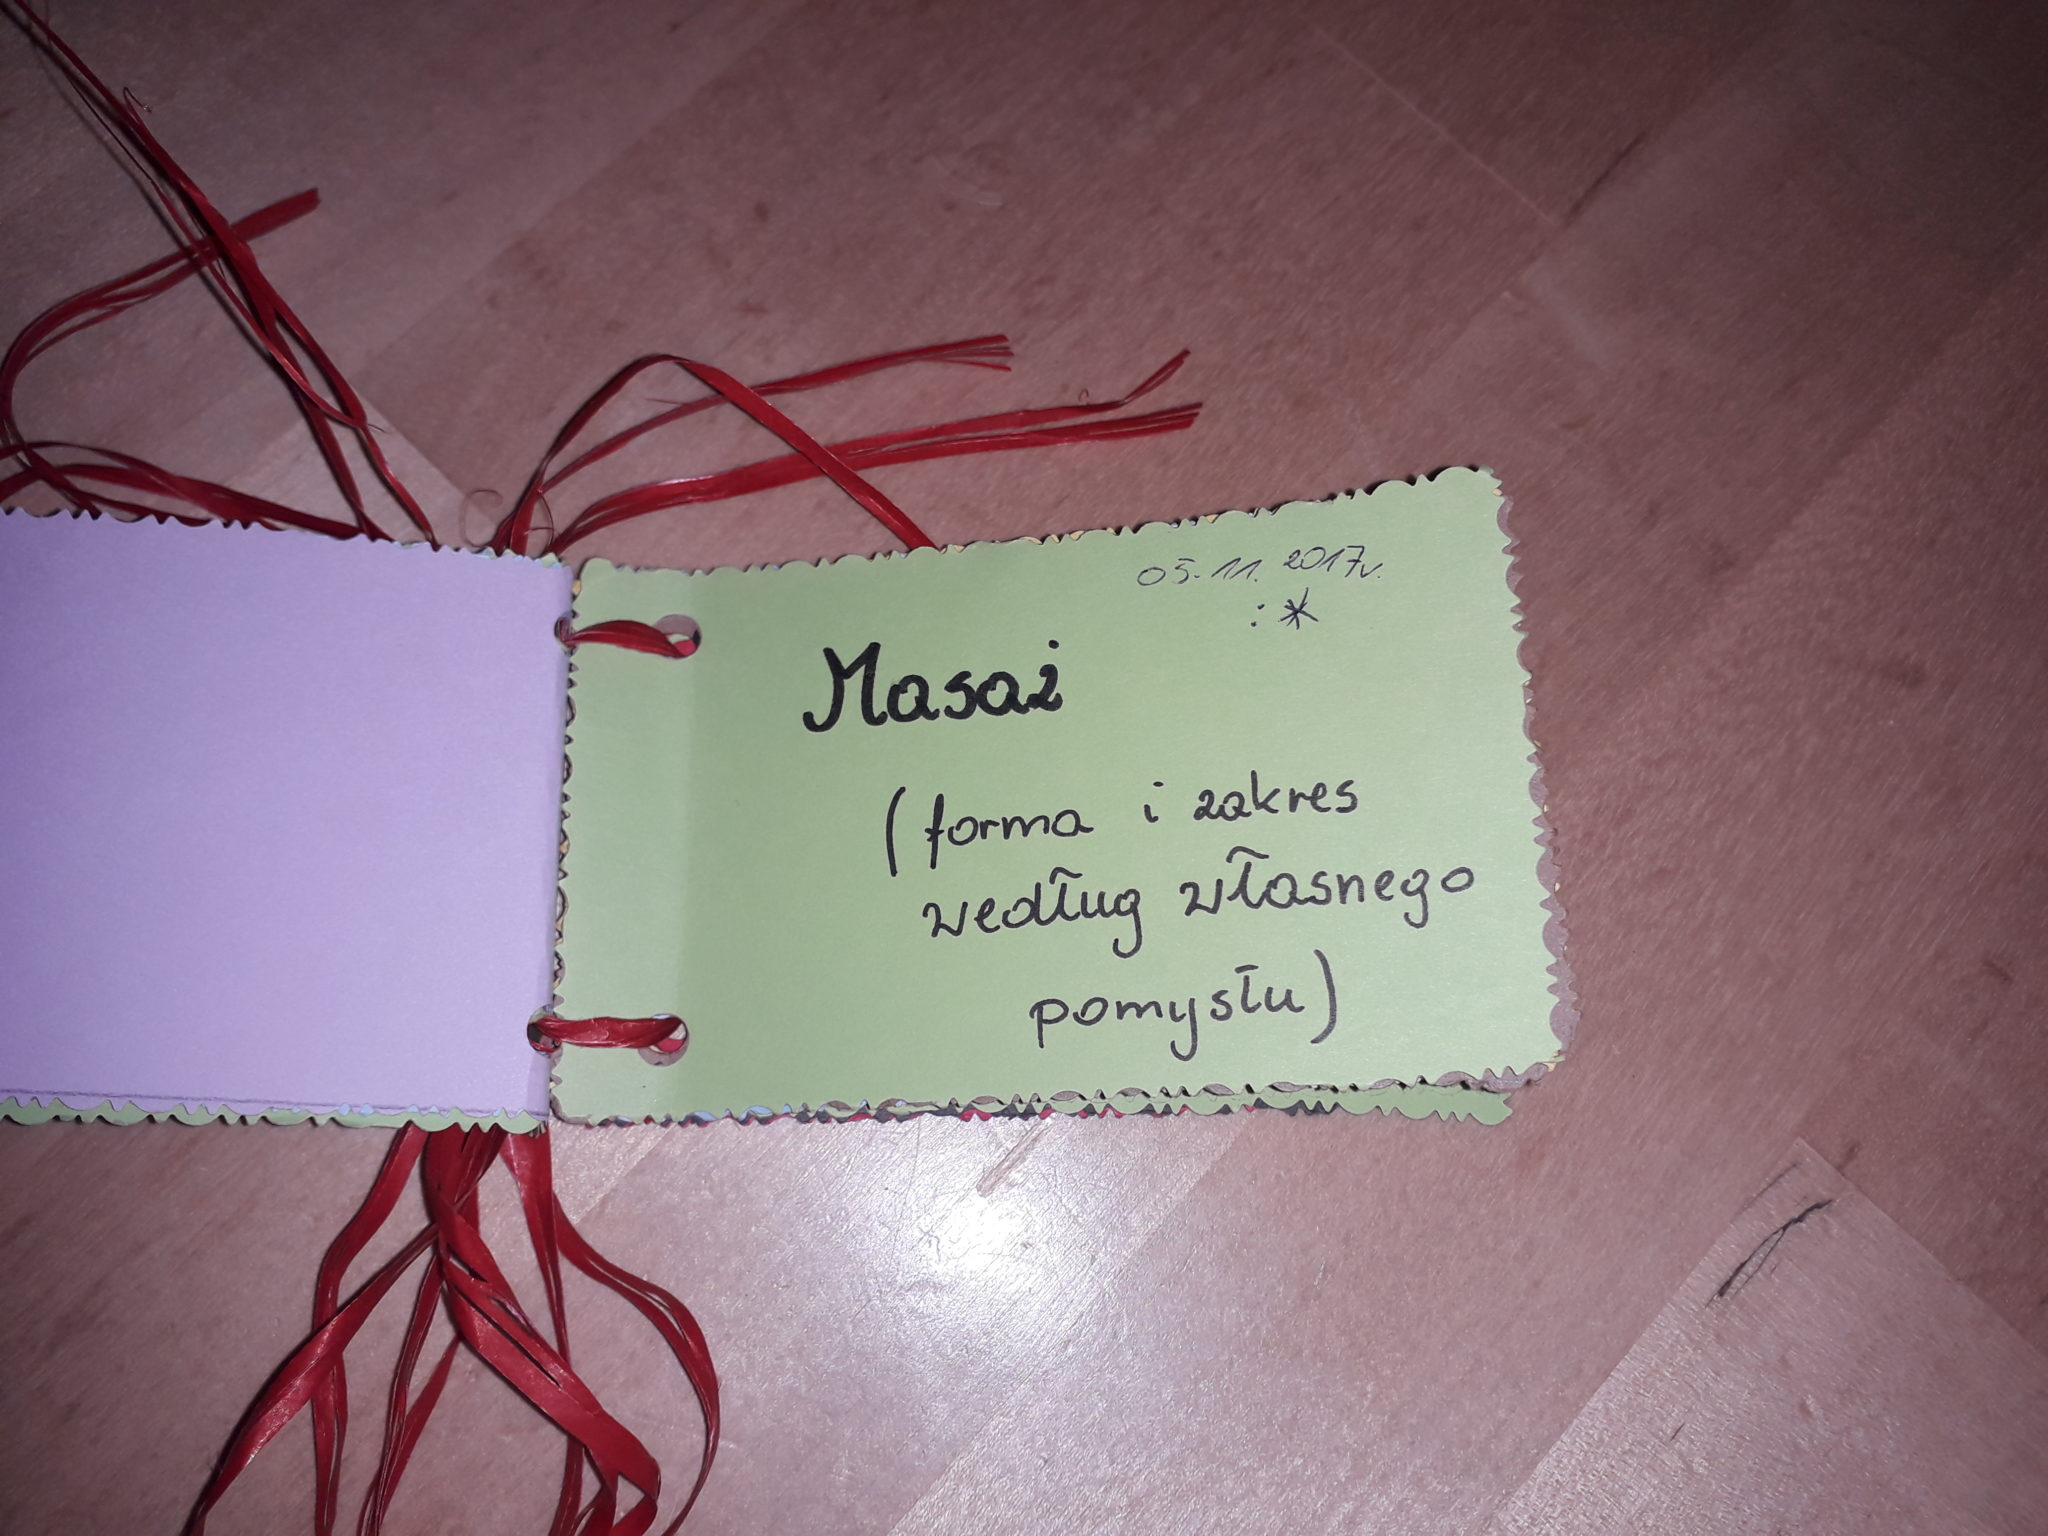 05.11.2017r.
:*
Masaż
(forma i zakres
według własnego
pomysłu)